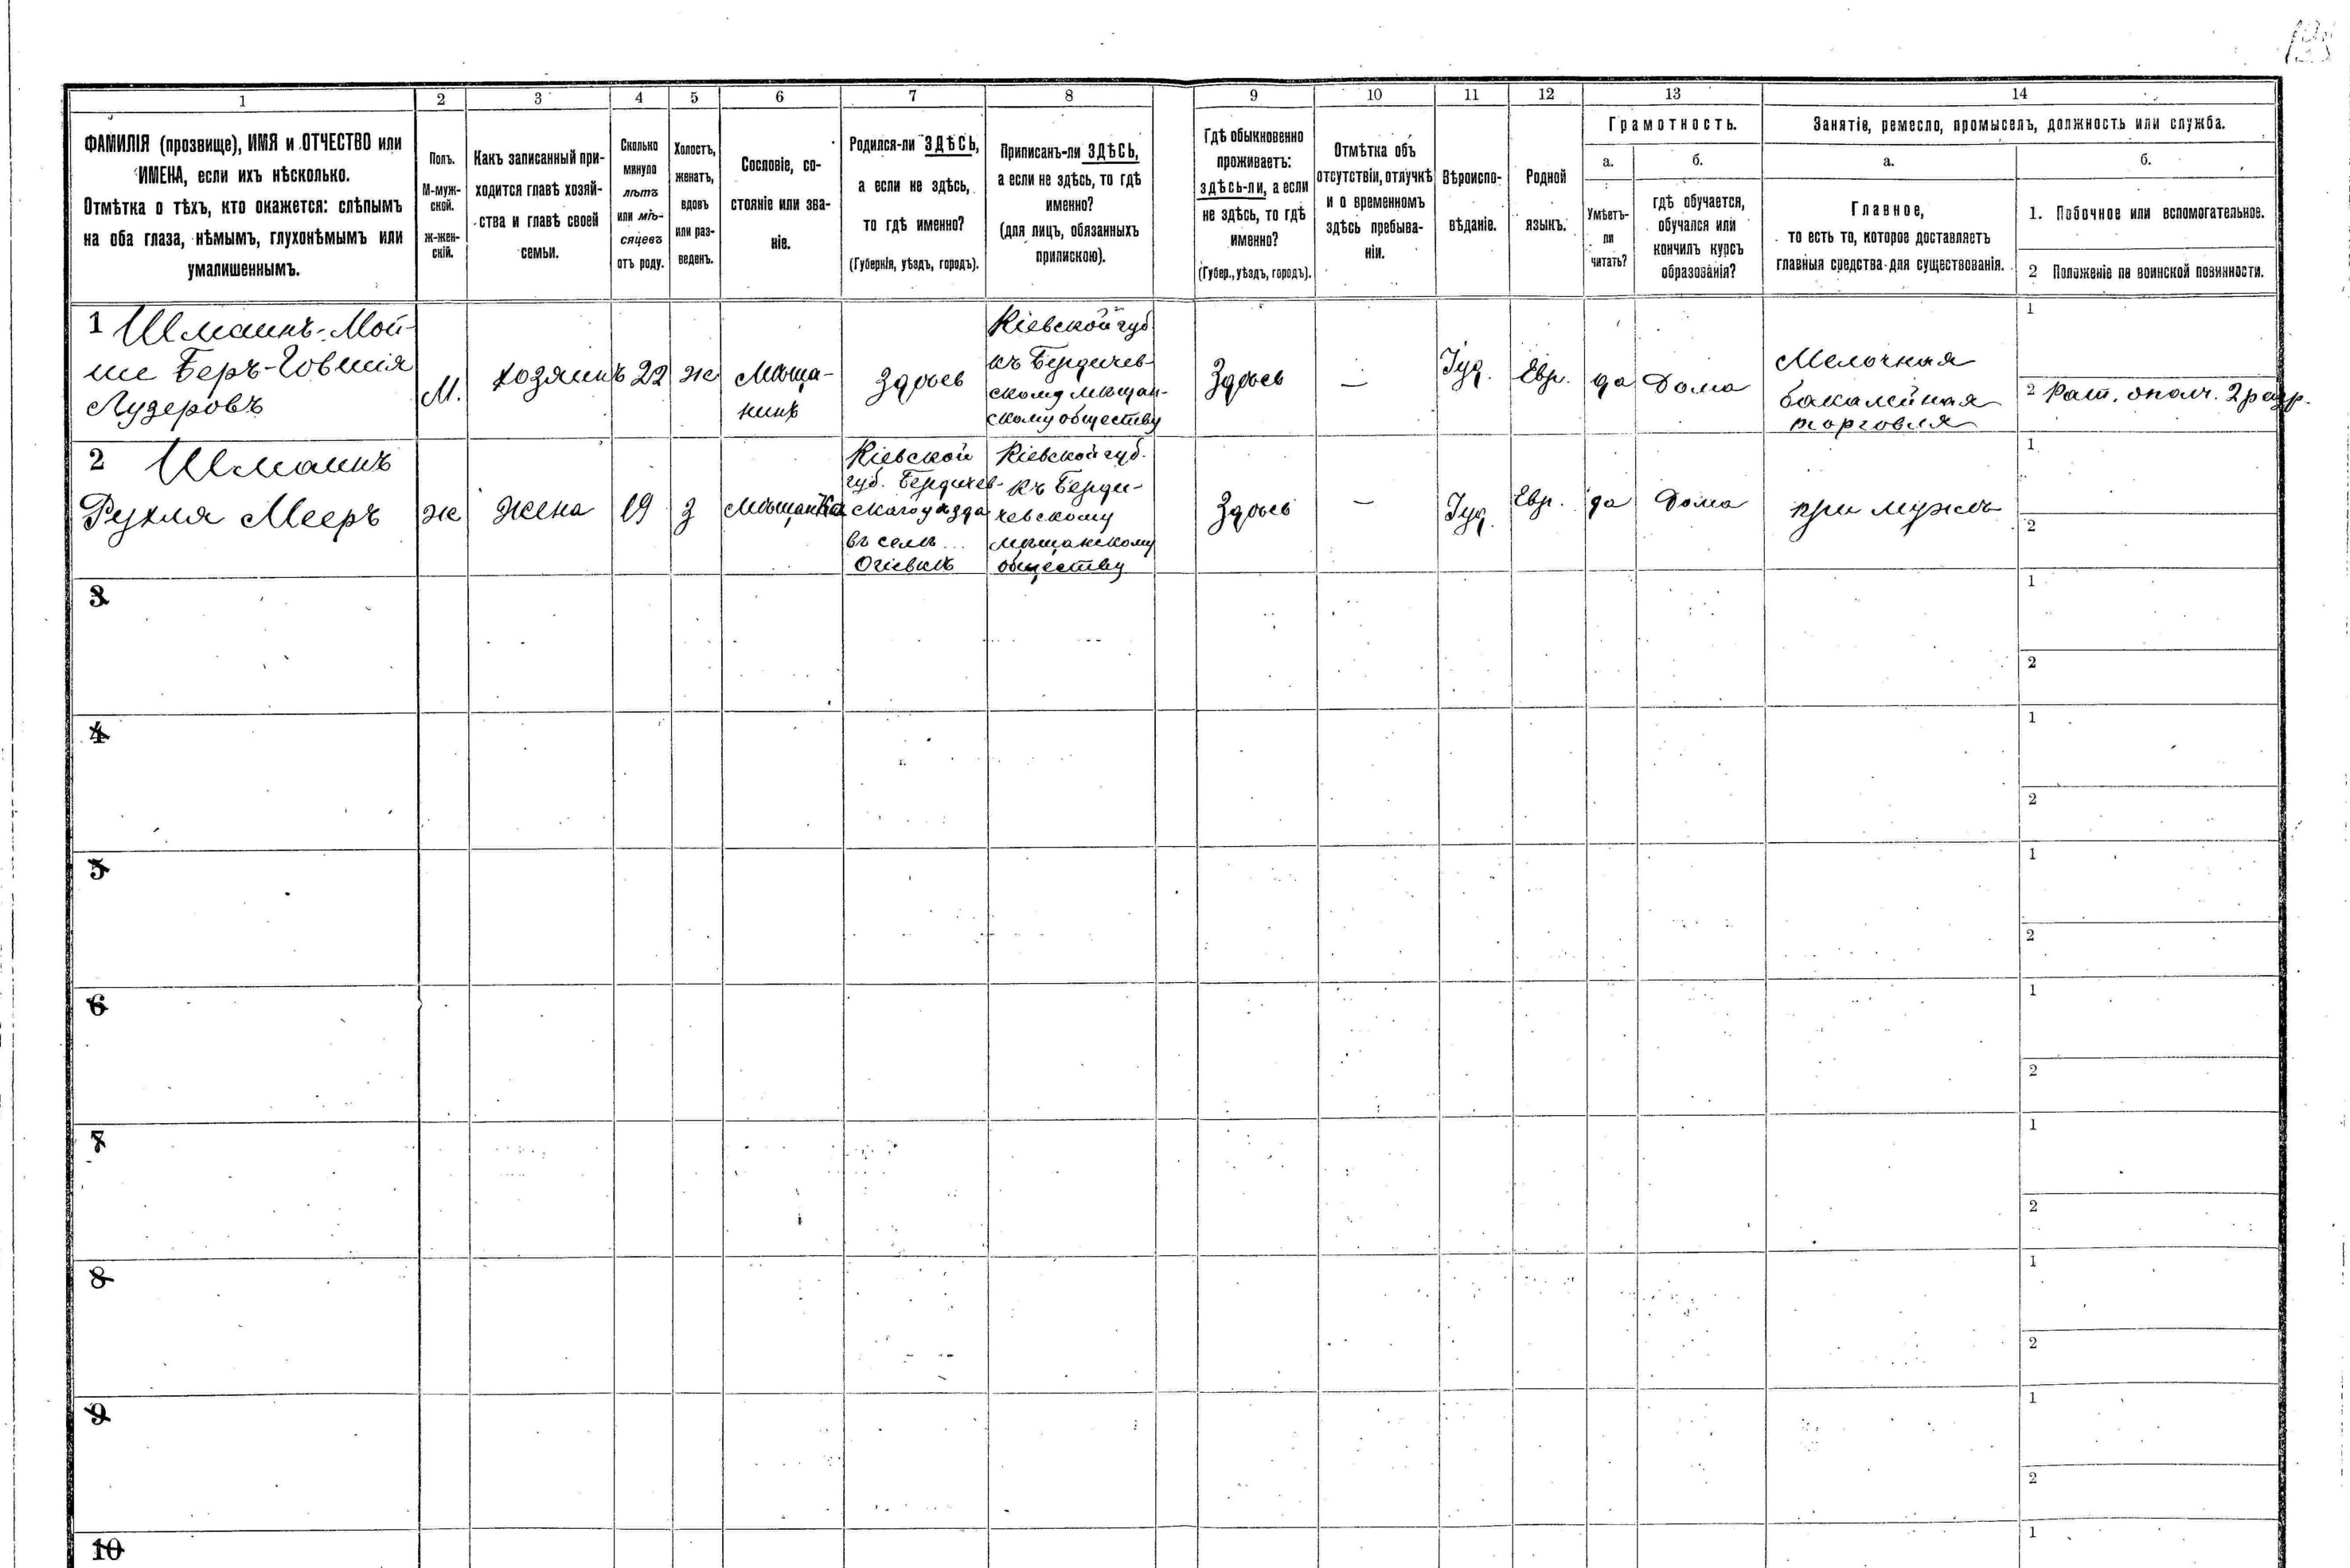 1 2 3 4 5 6 7 8 9 10 11 12 13 14
ФАМИЛІЯ (прозвище), ИМЯ и ОТЧЕСТВО или
ИМЕНА, если ихъ нѣсколько.
Отмѣтка о тѣхъ, кто окажется: слѣпымъ
на оба глаза, нѣмымъ, глухонѣмымъ или
умалишеннымъ.
Полъ.
М-муж-
ской.
ж-жен-
скій.
Какъ записанный при-
ходится главѣ хозяй-
ства и главѣ своей
семьи.
Сколько
минуло
лѣтъ
или мѣ-
сяцевъ
отъ роду.
Холостъ,
женатъ,
вдовъ
или раз-
веденъ.
Сословіе, со-
стояніе или зва-
ніе.
Родился-ли ЗДѢСЬ,
а если не здѣсь,
то гдѣ именно?
(Губернія, уѣздъ, городъ).
Приписанъ-ли ЗДѢСЬ,
а если не здѣсь, то гдѣ
именно?
(для лицъ, обязанныхъ
припискою).
Гдѣ обыкновенно
проживаетъ:
здѣсь-ли, а если
не здѣсь, то гдѣ
именно?
(Губер., уѣздъ, городъ).
Отмѣтка объ
отсутствіи, отлучкѣ
и о временномъ
здѣсь пребыва-
ніи.
Вѣроиспо-
вѣданіе.
Родной
языкъ.
Грамотность.
а.
Умѣетъ-
ли
читать?
б.
гдѣ обучается,
обучался или
кончилъ курсъ
образованія?
Занятіе, ремесло, промыселъ, должность или служба.
а.
Главное,
то есть то, которое доставляетъ
главныя средства для существованія.
б.
1. Побочное или вспомогательное.
2 Положеніе по воинской повинности.
1 Шмаинъ-Мой-
ше Беръ-Говшія
Лузеровъ
М.
хозяинъ
22
ж
мѣща-
нинъ
здѣсь
Кіевской губ.
къ Бердичев-
скому мѣщан-
скому обществу
Здѣсь
—
Іуд.
Евр.
да
дома
Мелочная
бакалейная
торговля
1
2 Рат. ополч. 2 разр.
2 Шмаинъ
Рухля Мееръ
ж
жена
19
з
мѣщанка
Кіевской
губ. Бердичев-
скаго уѣзда
въ селѣ
Кіевской губ.
къ Берди-
чевскому
мѣщанскому
обществу
Здѣсь
—
Іуд.
Евр.
да
дома
при мужѣ
1
2
3
1
2
4
1
2
5
1
2
6
1
2
7
1
2
8
1
2
9
1
2
10
1